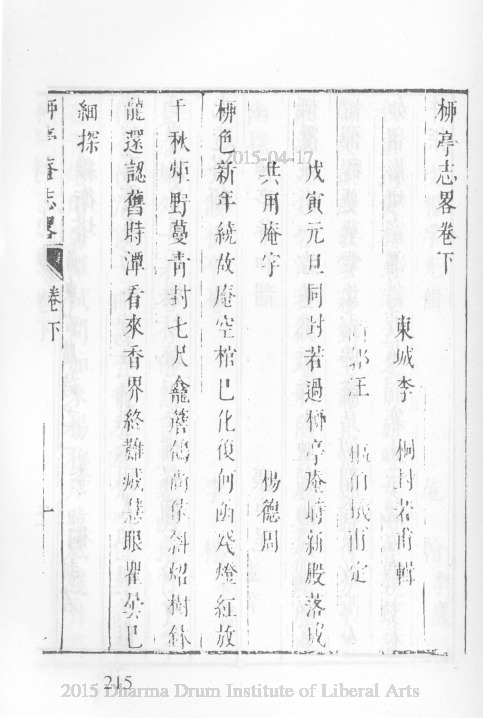 柳亭志畧卷下
東城李 桐封若甫輯
汪 甫定
戊寅元旦同封若過柳亭庵塔新殿落成
共用庵字 楊德周
柳色新年繞故庵空棺已化復何函殘燈紅放
千秋炬野蔓青封七尺龕簷鴿尚依斜照樹
龍還認舊時潭看來香界終難滅慧眼瞿曇已
細探
柳亭庵志畧 卷下 一
215
2015-04-17
2015 Dharma Drum Institute of Liberal Arts